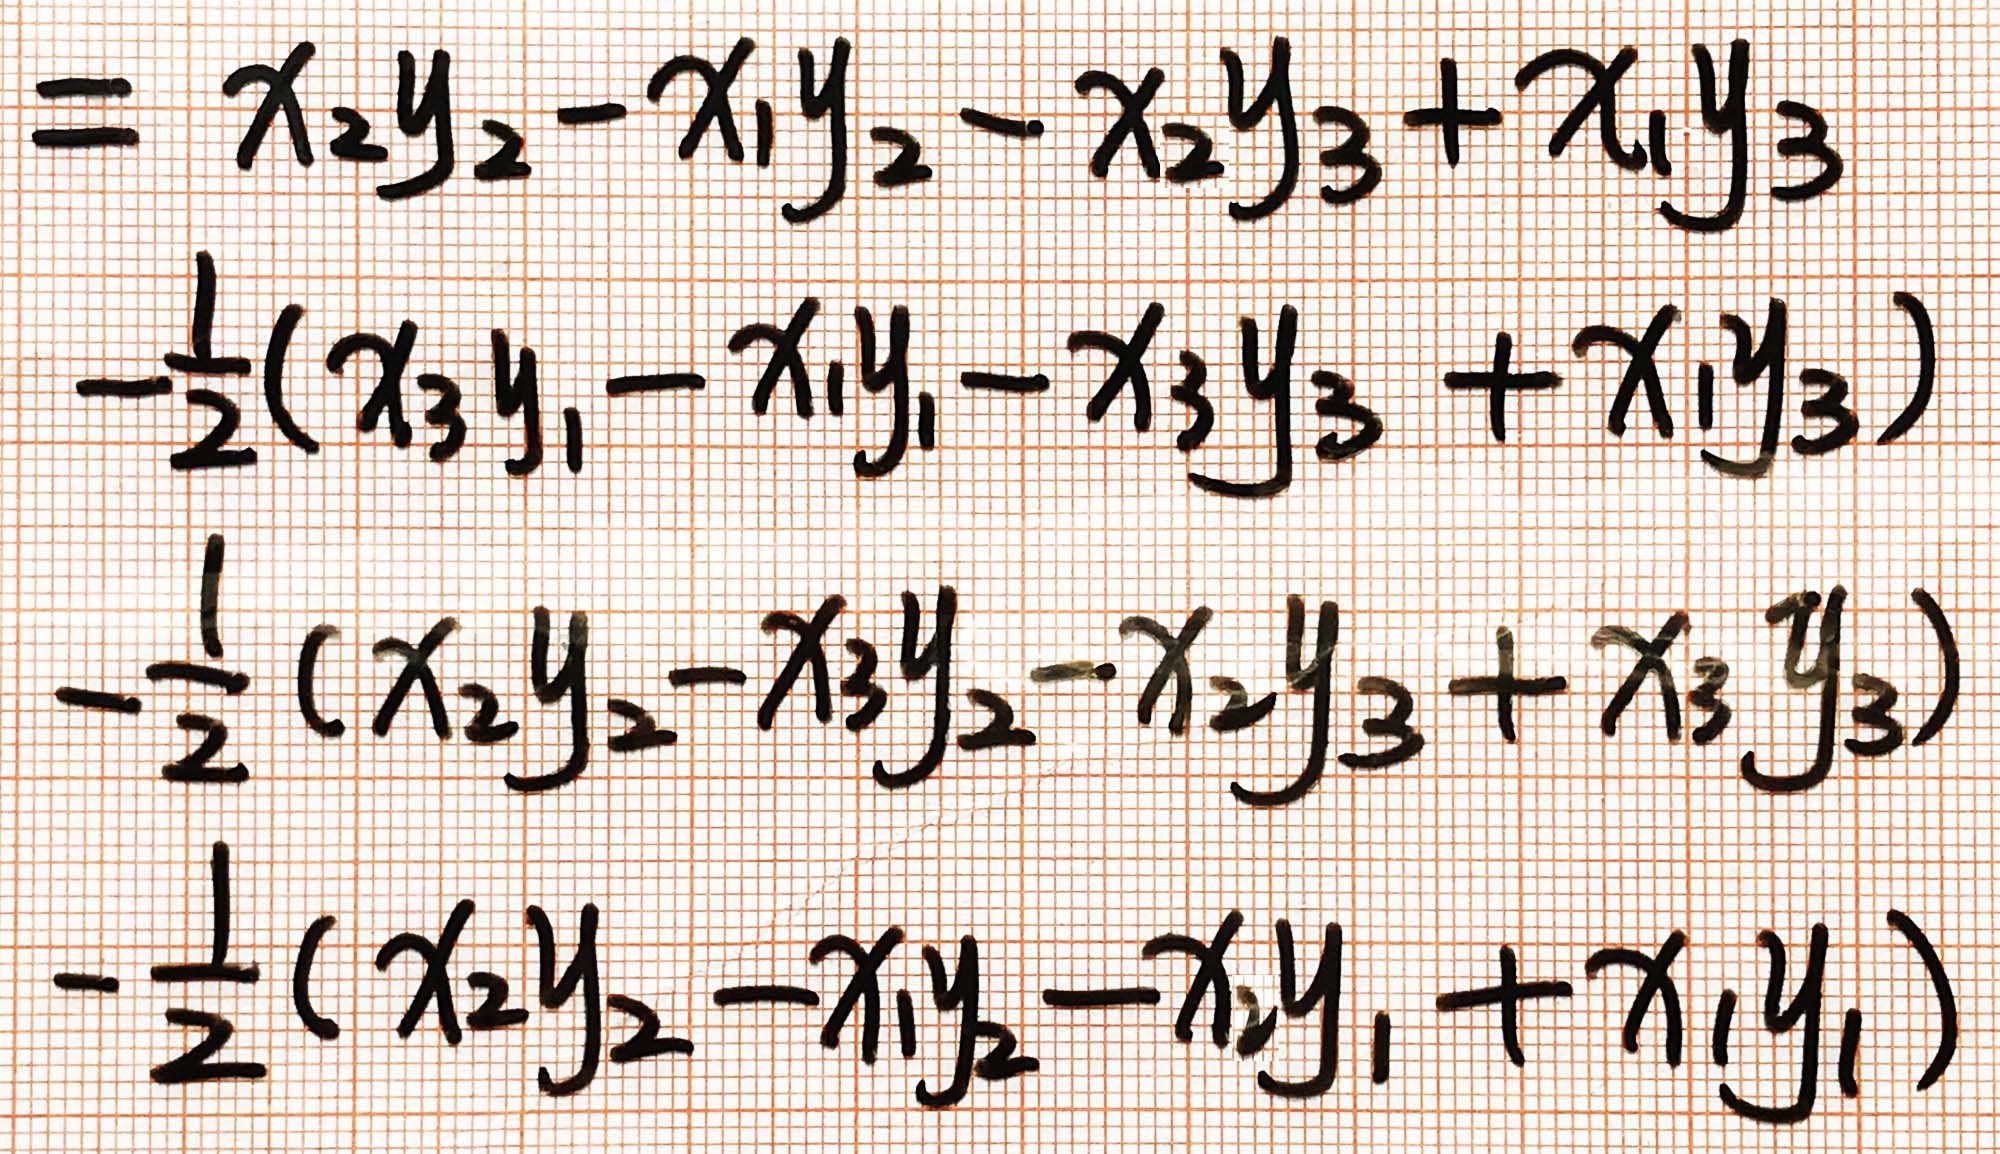 = x₂y₂ - x₁y₂ - x₂y₃ + x₁y₃
-½(x₃y₁ - x₁y₁ - x₃y₃ + x₁y₃)
-½(x₂y₂ - x₃y₂ - x₂y₃ + x₃y₃)
-½(x₂y₂ - x₁y₂ - x₂y₁ + x₁y₁)